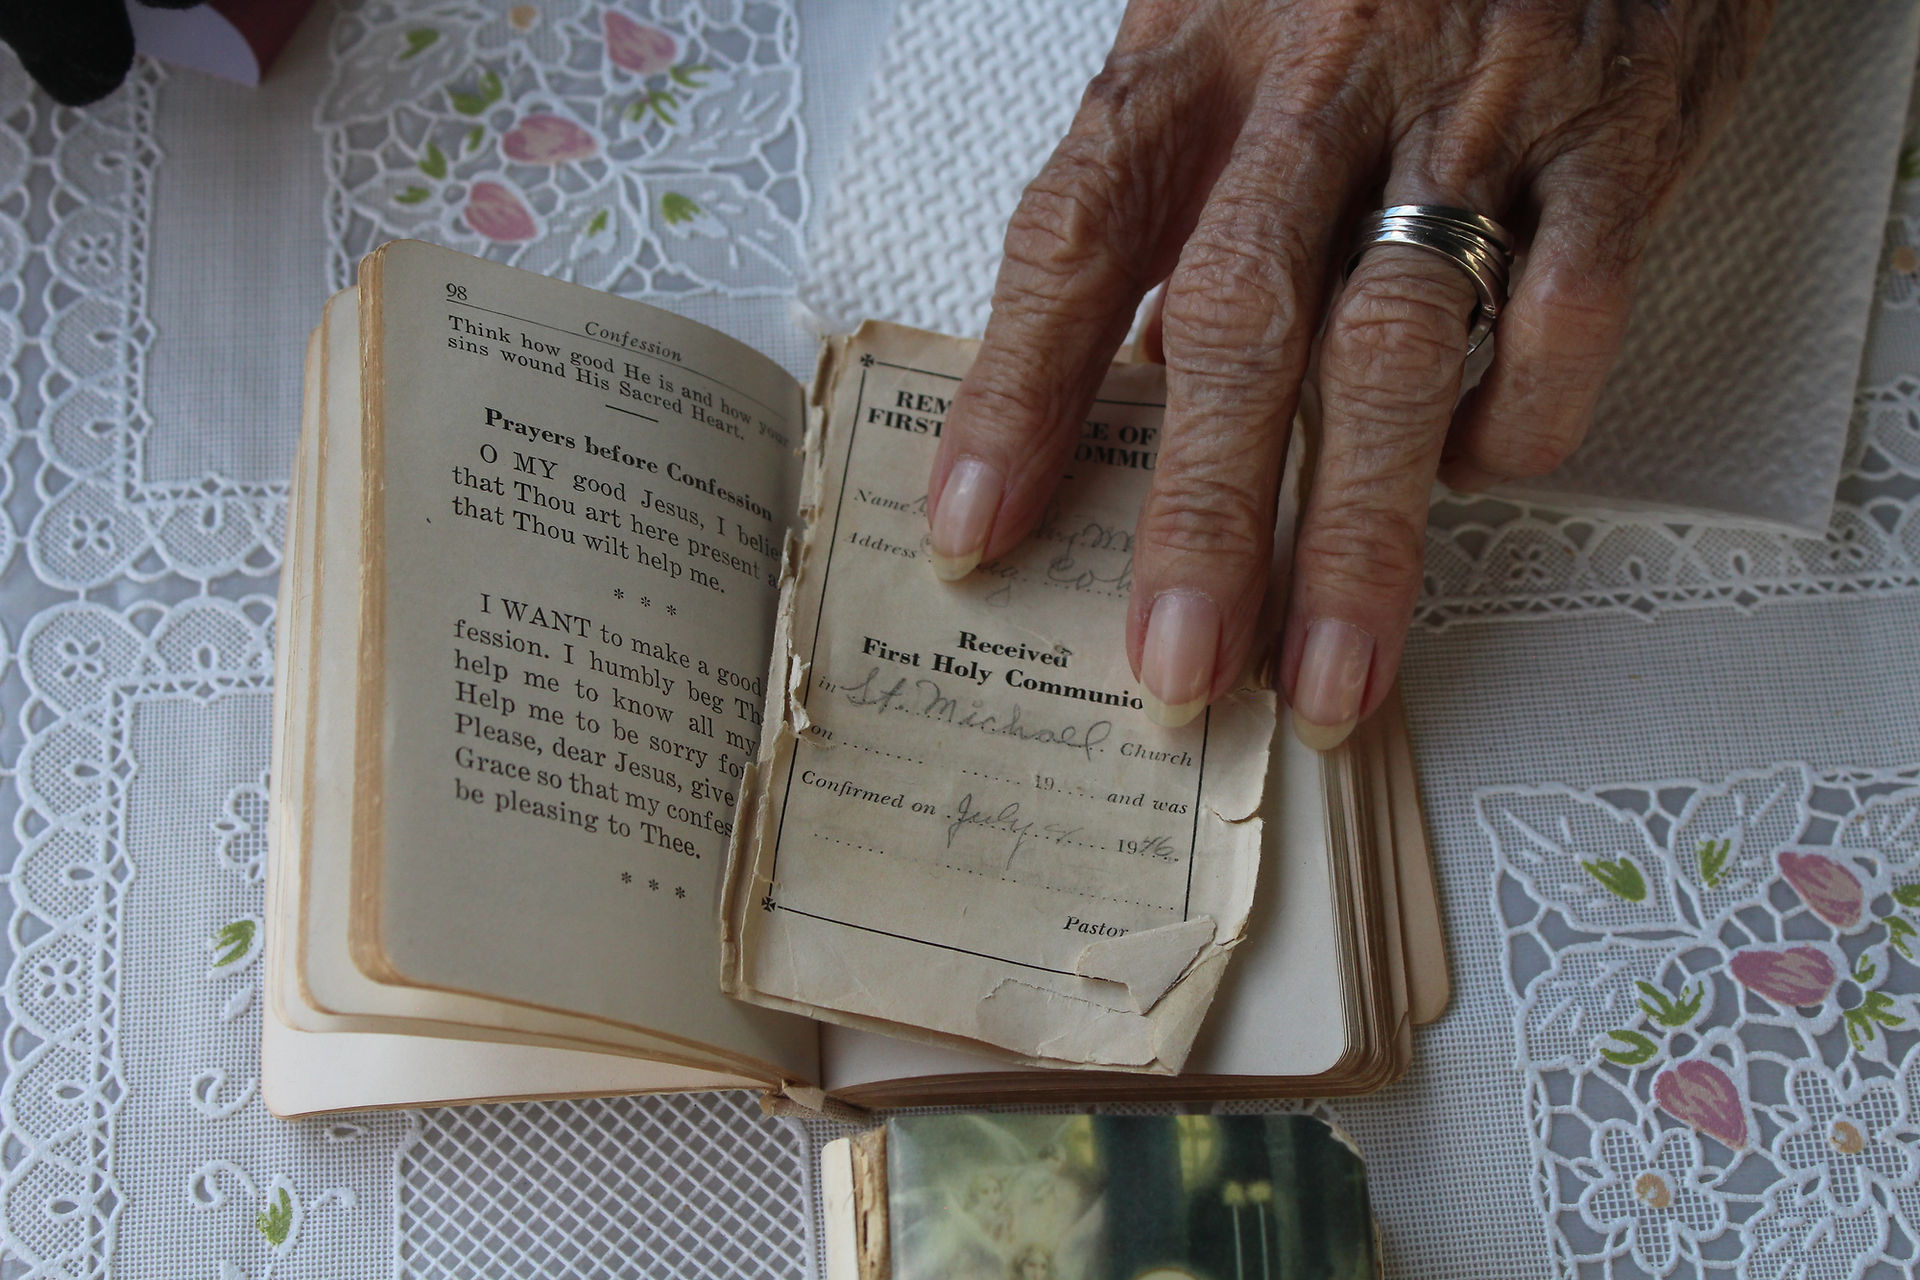 98
Confession
Think how good He is and how your
sins wound His Sacred Heart.
Prayers before Confession
O MY good Jesus, I belie
that Thou art here present a
that Thou wilt help me.
* * *
I WANT to make a good
fession. I humbly beg Th
help me to know all my
Help me to be sorry for
Please, dear Jesus, give
Grace so that my confes
be pleasing to Thee.
* * *
REM CE OF
FIRST OMMU
Name
Address
Received
First Holy Communio
in St. Michael Church
on ........ ...... 19.... and was
Confirmed on July 19 46
Pastor